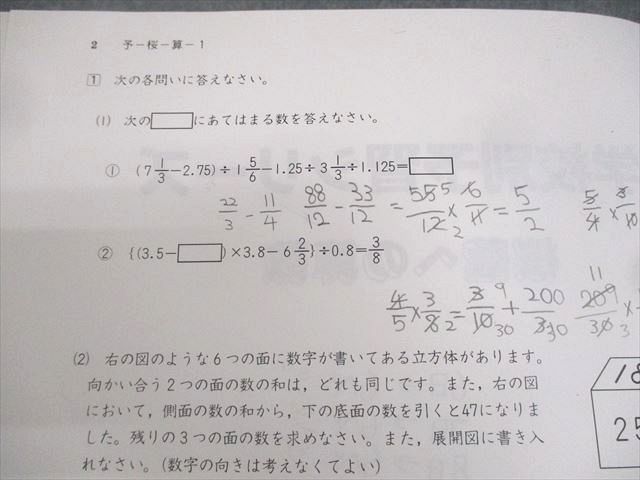 2 予－桜－算－1
1 次の各問いに答えなさい。
(1) 次の□にあてはまる数を答えなさい。
① (7 1/3 －2.75)÷1 5/6 －1.25÷3 1/3 ÷1.125＝□
22/3 - 11/4 88/12 - 33/12 = 55/12 × 6/11 = 5/2
② {(3.5－□)×3.8－6 2/3}÷0.8＝3/8
4/5 × 3/8 2 = 3/10 9 30 + 200/30 209/30 11 3
(2) 右の図のような6つの面に数字が書いてある立方体があります。
向かい合う2つの面の数の和は，どれも同じです。また，右の図
において，側面の数の和から，下の底面の数を引くと47になりま
した。残りの3つの面の数を求めなさい。また，展開図に書き入
れなさい。（数字の向きは考えなくてよい）
18
25